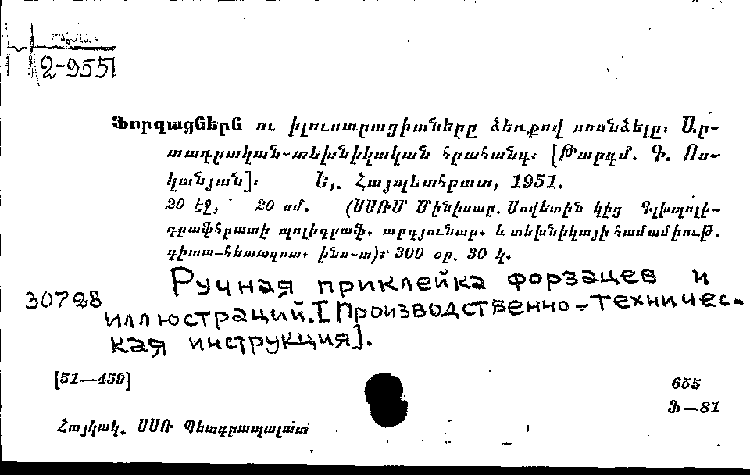 2-9551
Ֆորզացներն ու իլուստրացիաները ձեռքով սոսնձելը։ Ար-
տադրական-տեխնիկական հրահանգ։ [Թարգմ. Գ. Ոս-
կանյան]։ Ե., Հայպետհրատ, 1951.
20 էջ, 20 սմ. (ՍՍՌՄ Մինիստր. Սովետին կից Գլխպոլի-
գրաֆհրատի պոլիգրաֆ. արդյունաբ. և տեխնիկայի համամիութ.
գիտա-հետազոտ. ինս-տ)։ 300 օր. 30 կ.
30798 Ручная приклейка форзацев и
иллюстраций. [Производственно-техничес-
кая инструкция].
[51—459]
655
Ֆ—81
Հայկակ. ՍՍՌ Պետգրապալատ